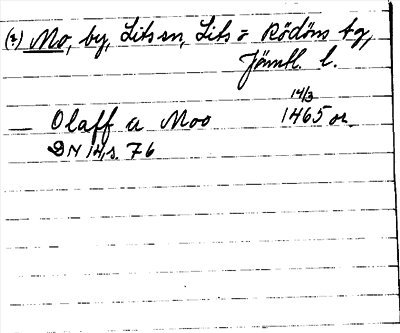 (?) Mo, by, Lits sn, Lits = Rödöns tg,
Jämtl. l.
14/3
— Olaff a Moo 1465 or.
DN 14, s. 76